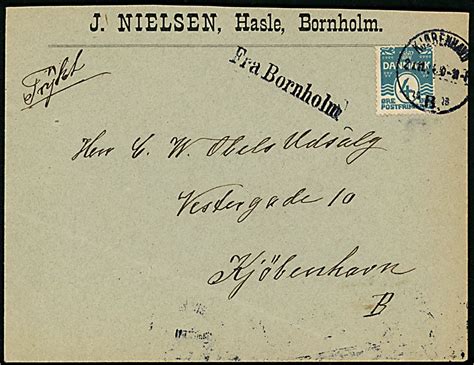 J. NIELSEN, Hasle, Bornholm.
Tryksag
Fra Bornholm
DANMARK
4
ØRE
POSTFRIM.
KJØBENHAVN
B
Herr C. W. Obels Udsalg
Vestergade 10
Kjöbenhavn
B